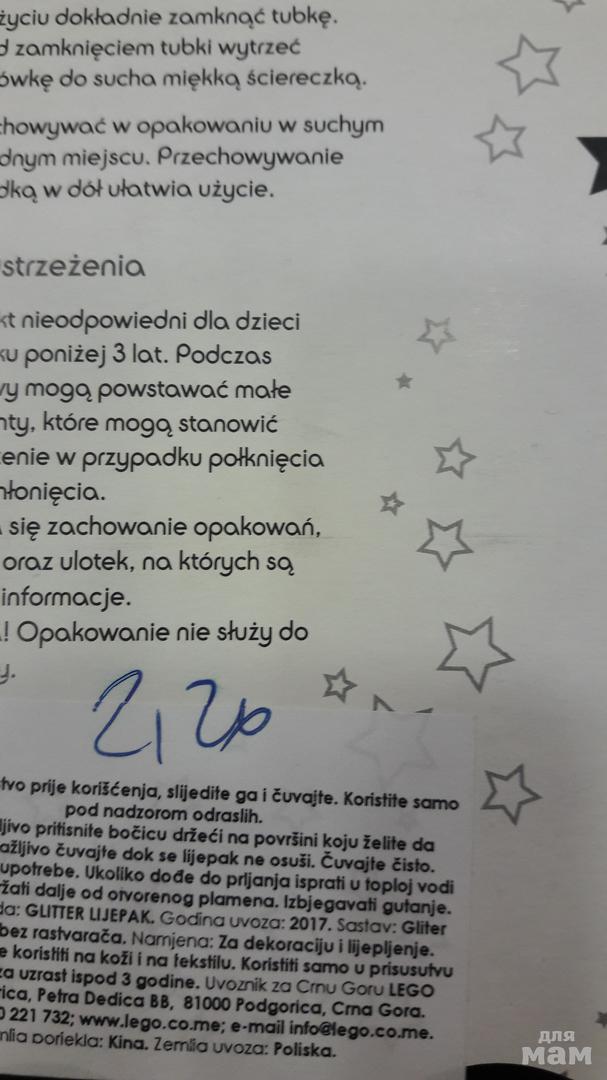 życiu dokładnie zamknąć tubkę.
d zamknięciem tubki wytrzeć
ówkę do sucha miękką ściereczką.
chowywać w opakowaniu w suchym
dnym miejscu. Przechowywanie
dką w dół ułatwia użycie.
strzeżenia
kt nieodpowiedni dla dzieci
ku poniżej 3 lat. Podczas
wy mogą powstawać małe
nty, które mogą stanowić
enie w przypadku połknięcia
hłonięcia.
się zachowanie opakowań,
oraz ulotek, na których są
informacje.
! Opakowanie nie służy do
y.
2,20
tvo prije korišćenja, slijedite ga i čuvajte. Koristite samo
pod nadzorom odraslih.
ljivo pritisnite bočicu držeći na površini koju želite da
ažljivo čuvajte dok se lijepak ne osuši. Čuvajte čisto.
upotrebe. Ukoliko dođe do prljanja isprati u toploj vodi
žati dalje od otvorenog plamena. Izbjegavati gutanje.
da: GLITTER LIJEPAK. Godina uvoza: 2017. Sastav: Gliter
bez rastvarača. Namjena: Za dekoraciju i lijepljenje.
e koristiti na koži i na tekstilu. Koristiti samo u prisusutvu
za uzrast ispod 3 godine. Uvoznik za Crnu Goru LEGO
rica, Petra Dedica BB, 81000 Podgorica, Crna Gora.
0 221 732; www.lego.co.me; e-mail info@lego.co.me.
mlja porijekla: Kina. Zemlja uvoza: Poljska.
для
мам